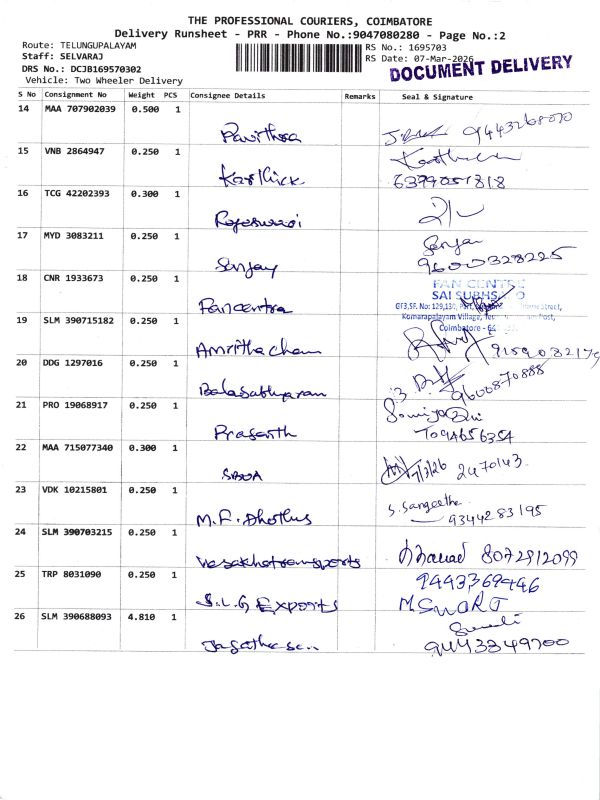 THE PROFESSIONAL COURIERS, COIMBATORE
Delivery Runsheet - PRR - Phone No.:9047080280 - Page No.:2
Route: TELUNGUPALAYAM
Staff: SELVARAJ
DRS No.: DCJB169570302
Vehicle: Two Wheeler Delivery
RS No.: 1695703
RS Date: 07-Mar-2026
DOCUMENT DELIVERY
S No Consignment No Weight PCS Consignee Details Remarks Seal & Signature
14 MAA 707902039 0.500 1
Pavithra 9443268070
15 VNB 2864947 0.250 1
Karthick
6379051818
16 TCG 42202393 0.300 1
Rajeswari
17 MYD 3083211 0.250 1
Sanjay
9600328225
18 CNR 1933673 0.250 1
Fancentra
FAN CENTRE
SAI SUBHS
GF3,SF. No: 129,130,
Komarapalayam Village,
Coimbatore -
19 SLM 390715182 0.250 1
Amritha cham
20 DDG 1297016 0.250 1
Balasathyaram 9600870888
21 PRO 19068917 0.250 1
Prasanth
22 MAA 715077340 0.300 1
SBOA 2470143
23 VDK 10215801 0.250 1
M.F. Dhothus
S. Sangeetha
9344283195
24 SLM 390703215 0.250 1
Vesakhatransports 8072912099
25 TRP 8031090 0.250 1
S.L.G Exports
9443369446
26 SLM 390688093 4.810 1
9443349700